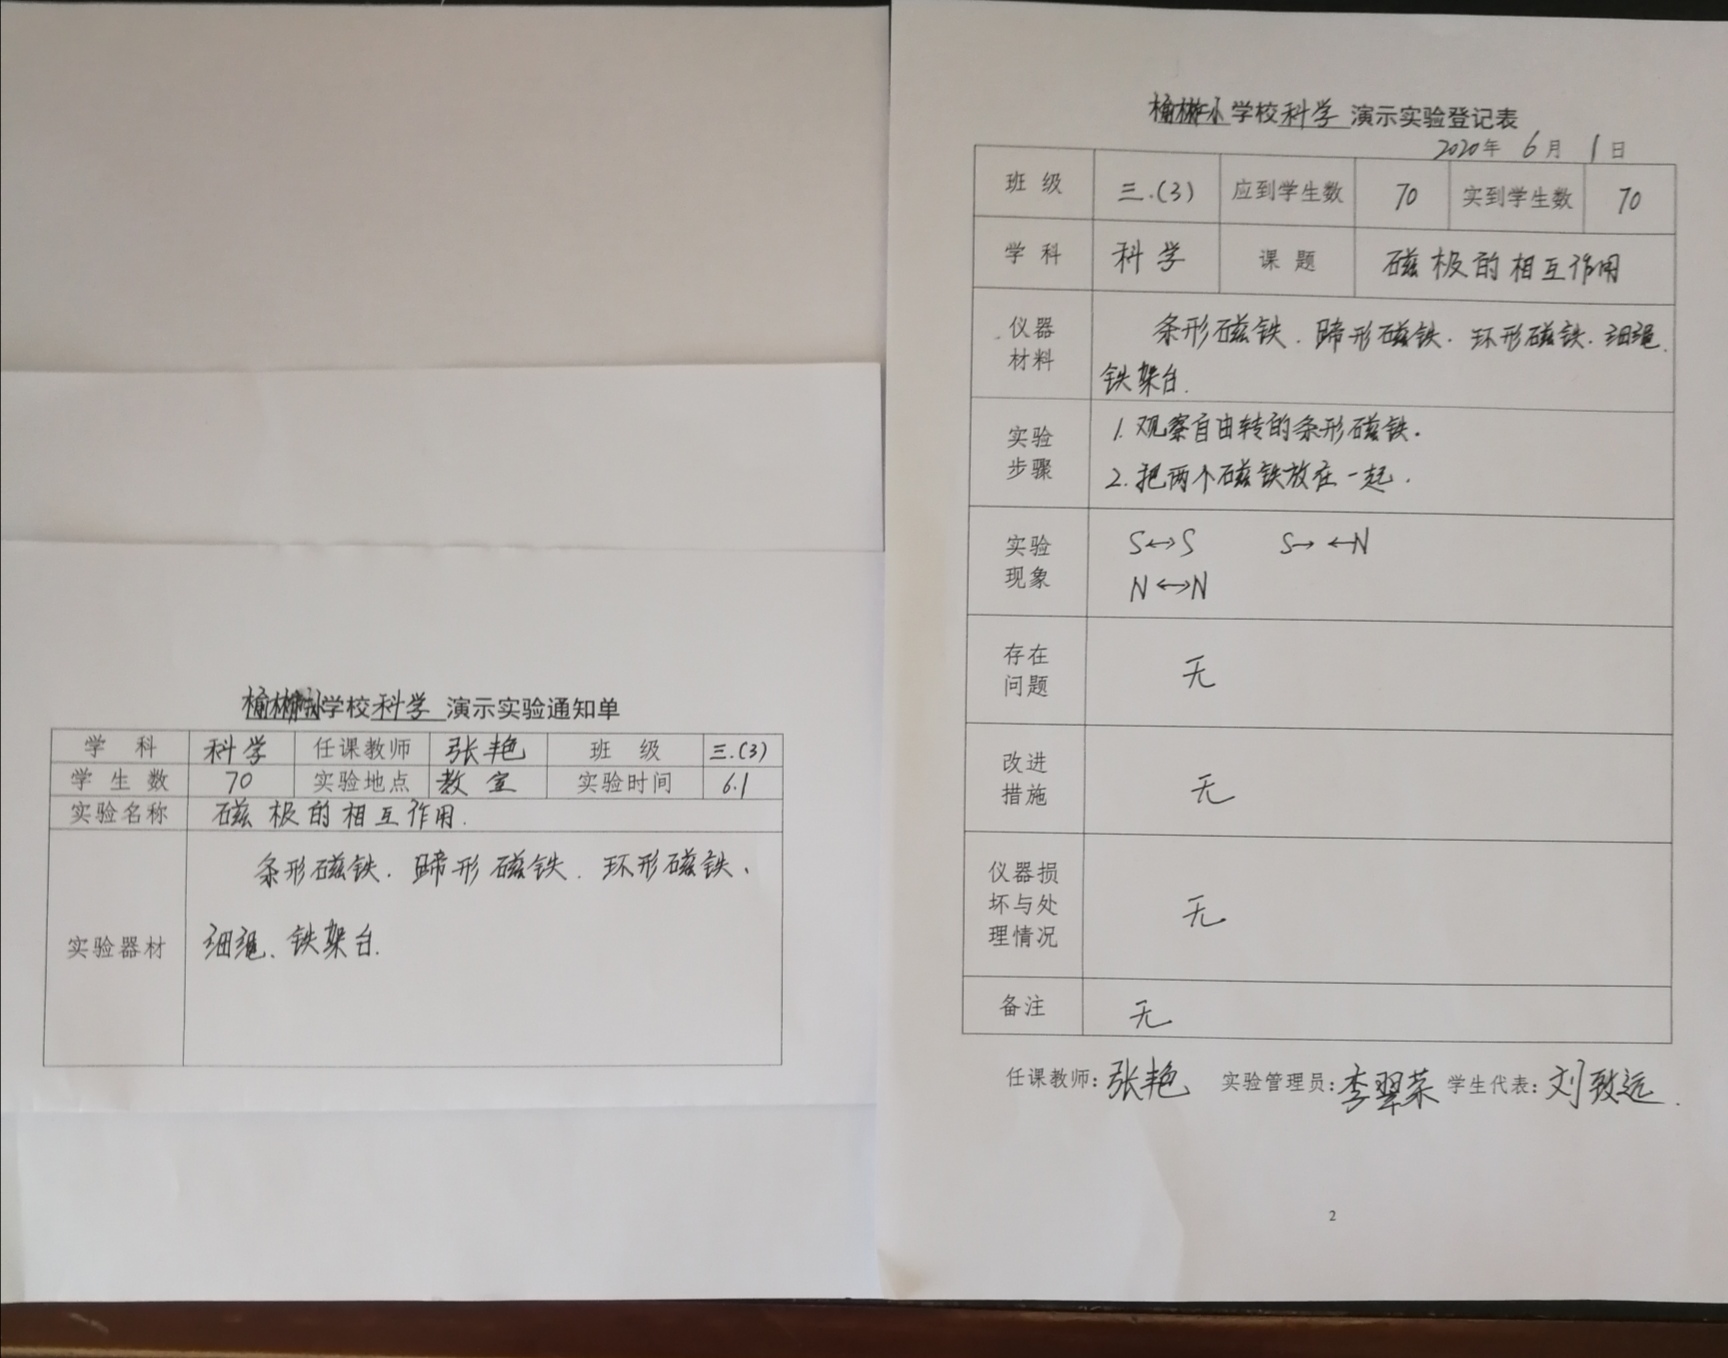 学校科学 演示实验通知单
学科 科学 任课教师 张艳 班级 三.(3)
学生数 70 实验地点 教室 实验时间 6.1
实验名称 磁极的相互作用.
条形磁铁. 蹄形磁铁. 环形磁铁、
实验器材 细绳、铁架台.
学校科学 演示实验登记表
2020年 6月 1日
班级 三.(3) 应到学生数 70 实到学生数 70
学科 科学 课题 磁极的相互作用
仪器材料 条形磁铁. 蹄形磁铁. 环形磁铁. 细绳.
铁架台.
实验步骤 1. 观察自由转的条形磁铁.
2. 把两个磁铁放在一起.
实验现象 S↔S S→ ←N
N↔N
存在问题 无
改进措施 无
仪器损坏与处理情况 无
备注 无
任课教师: 张艳 实验管理员: 李翠荣 学生代表: 刘致远.
2